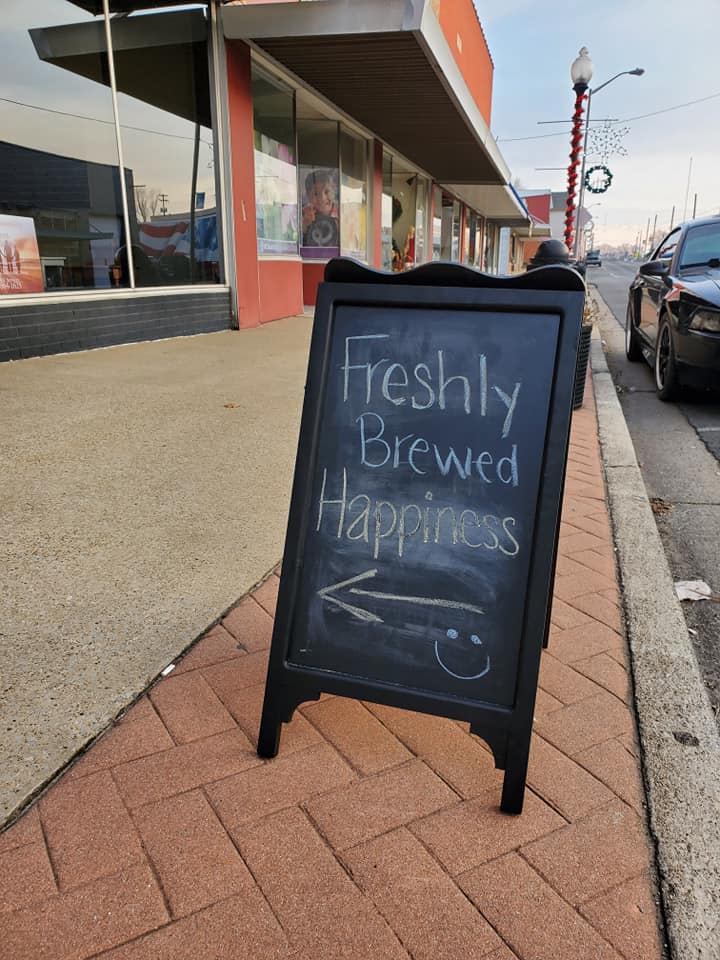 Freshly
Brewed
Happiness